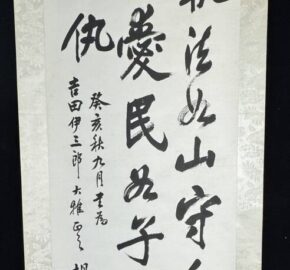 法如山守
愛民如子
仇
癸亥秋九月書為
吉田伊三郎大雅正之